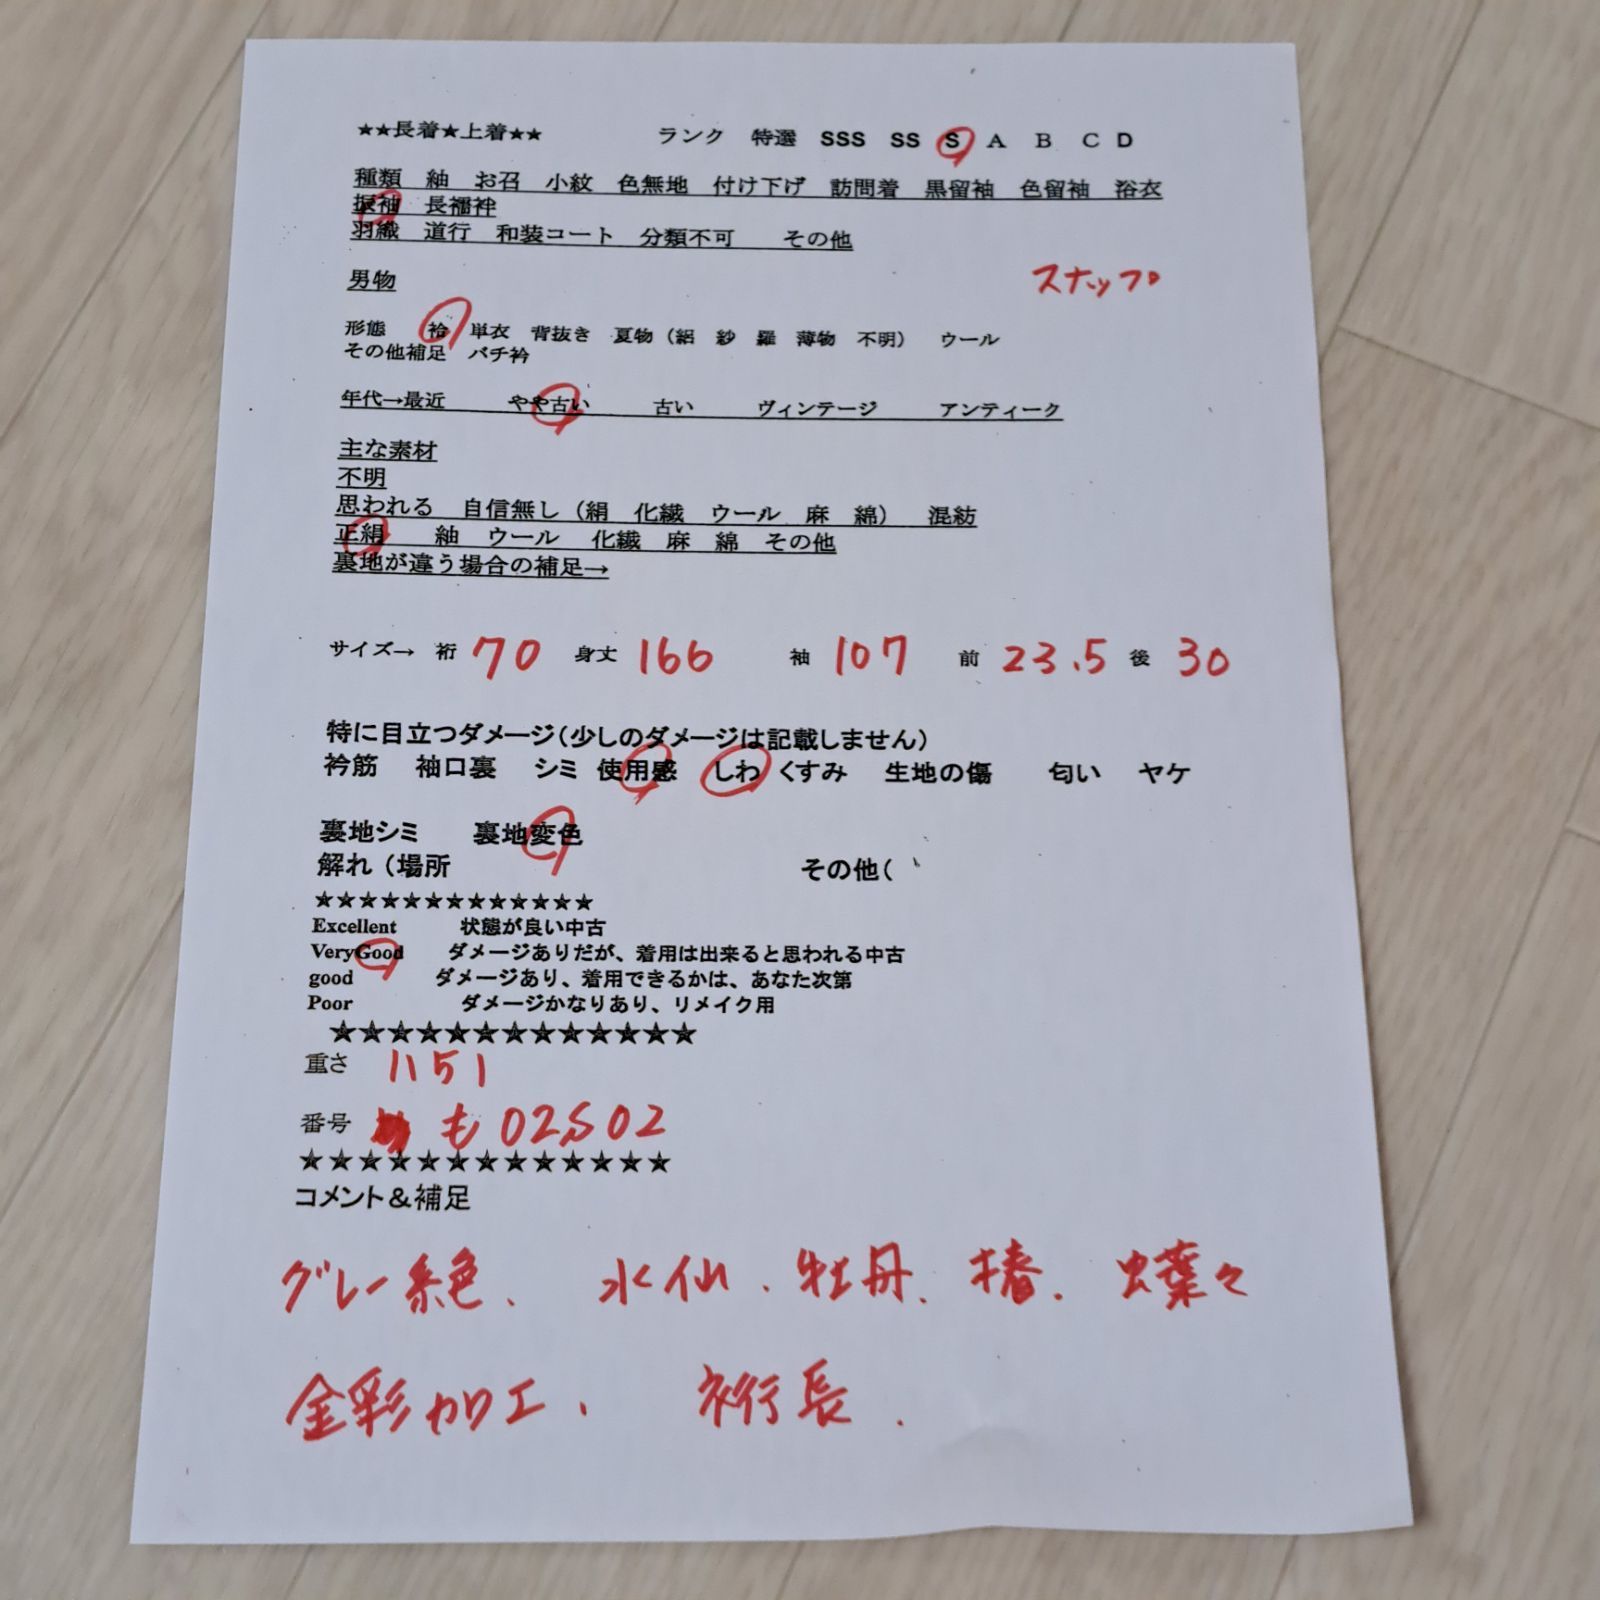 ★★長着★上着★★　ランク　特選　SSS　SS　S　A　B　C　D
種類　紬　お召　小紋　色無地　付け下げ　訪問着　黒留袖　色留袖　浴衣
振袖　長襦袢
羽織　道行　和装コート　分類不可　その他
男物　スナップ
形態　袷　単衣　背抜き　夏物（絽　紗　羅　薄物　不明）　ウール
その他補足　バチ衿
年代→最近　やや古い　古い　ヴィンテージ　アンティーク
主な素材
不明
思われる　自信無し（絹　化繊　ウール　麻　綿）　混紡
正絹　紬　ウール　化繊　麻　綿　その他
裏地が違う場合の補足→
サイズ→　裄　70　身丈　166　袖　107　前　23.5　後　30
特に目立つダメージ（少しのダメージは記載しません）
衿筋　袖口裏　シミ　使用感　しわ　くすみ　生地の傷　匂い　ヤケ
裏地シミ　裏地変色
解れ（場所　その他（
★★★★★★★★★★★★★
Excellent　状態が良い中古
VeryGood　ダメージありだが、着用は出来ると思われる中古
good　ダメージあり、着用できるかは、あなた次第
Poor　ダメージかなりあり、リメイク用
★★★★★★★★★★★★★
重さ　1151
番号　も02502
★★★★★★★★★★★★★
コメント＆補足
グレー系色、水仙、牡丹、椿、蝶々
金彩加工、裄長、